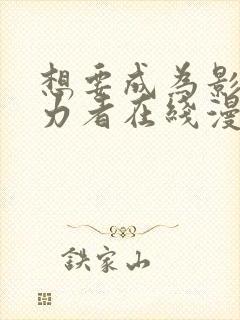 想要成为影
力者在线漫
鉄家山